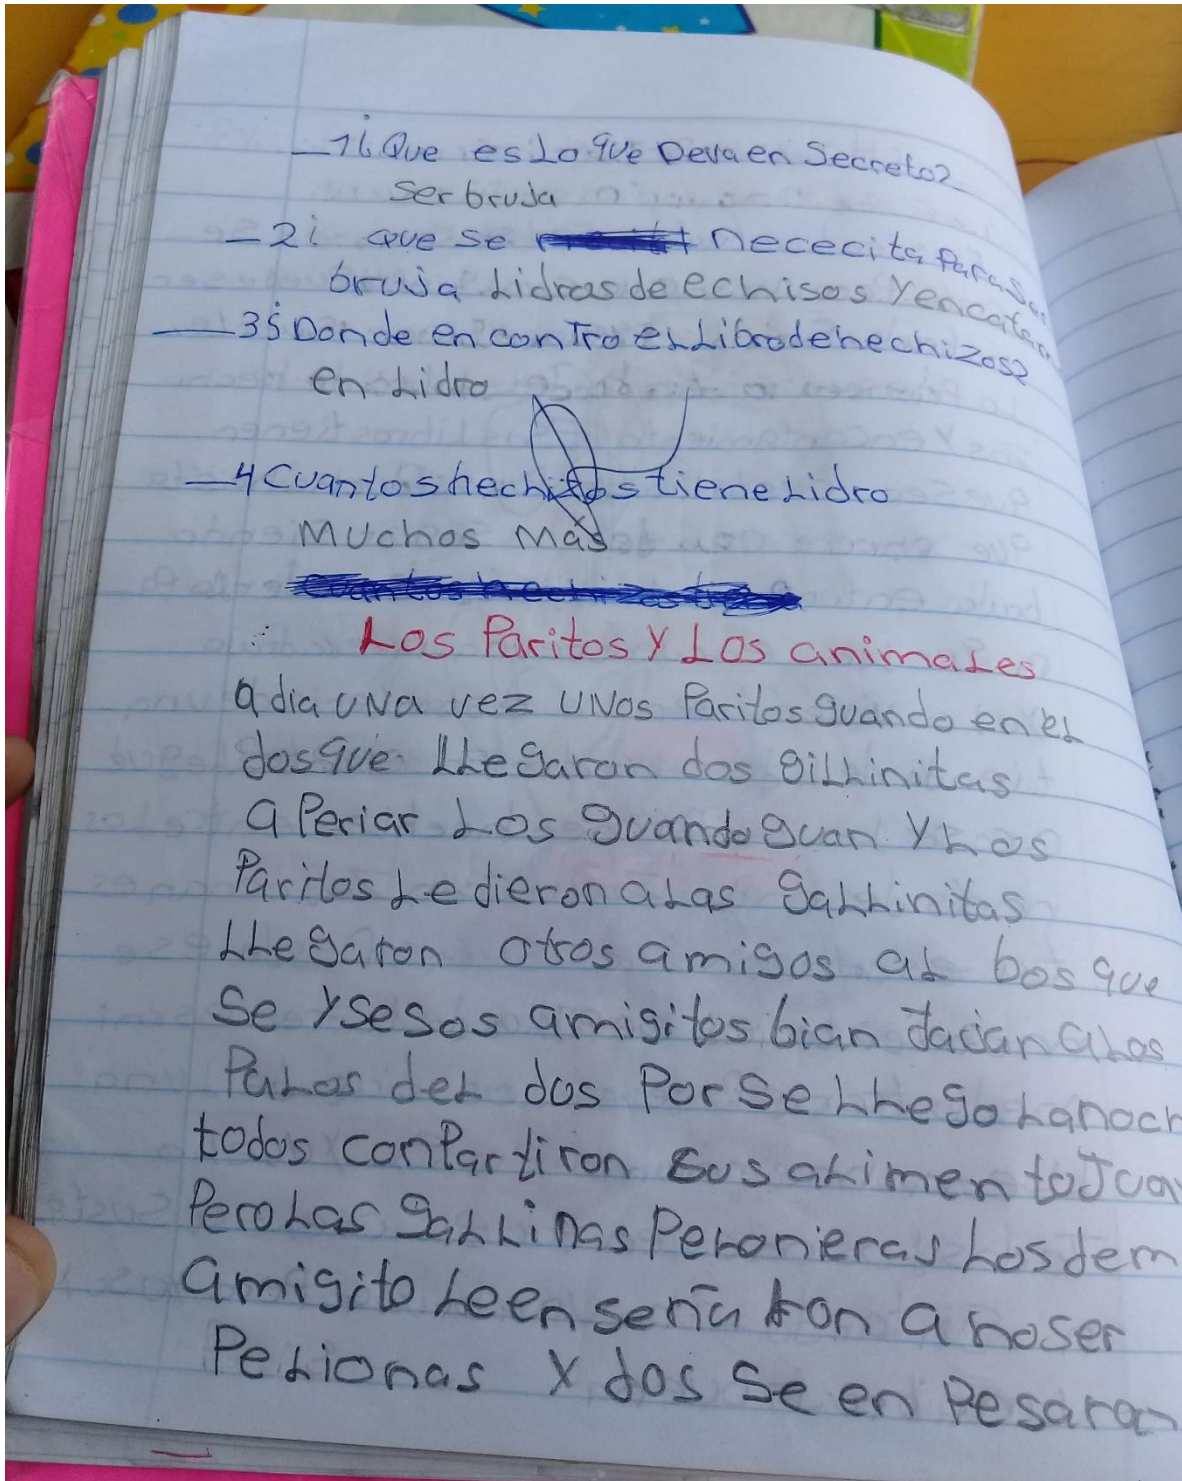 1¿Que es Lo que Deva en Secreto?
ser bruja
2¿ que se nececita para ser
bruja Lidros de echisos y encata
3¿Donde en contro el Libro de hechizos?
en Lidro
4 Cuantos hechizos tiene Lidro
Muchos más
Los Paritos y Los animales
a dia una vez unos Paritos guando en el
dosque llegaron dos gillinitas
a Periar Los guando guan y Los
Paritos Le dieron a Las gallinitas
Llegaron otros amigos al bosque
se y sesos amigitos bian dacian a Los
Palos del dos Por se Llego La noch
todos conPartiron sus alimento
Pero Las gallinas Pelonieras Los dem
amigito Le enseñaron a no ser
Pelionas y dos se en Pesaron